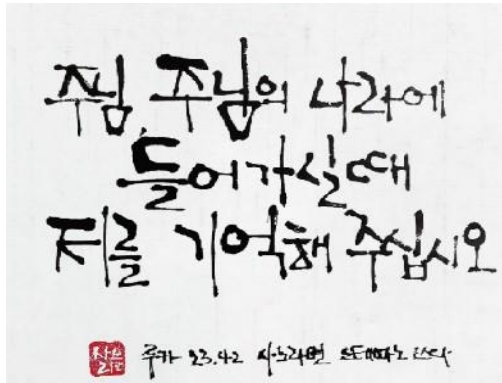 주님 주님의 나라에
들어가실때
저를 기억해 주십시오
루카 23.42